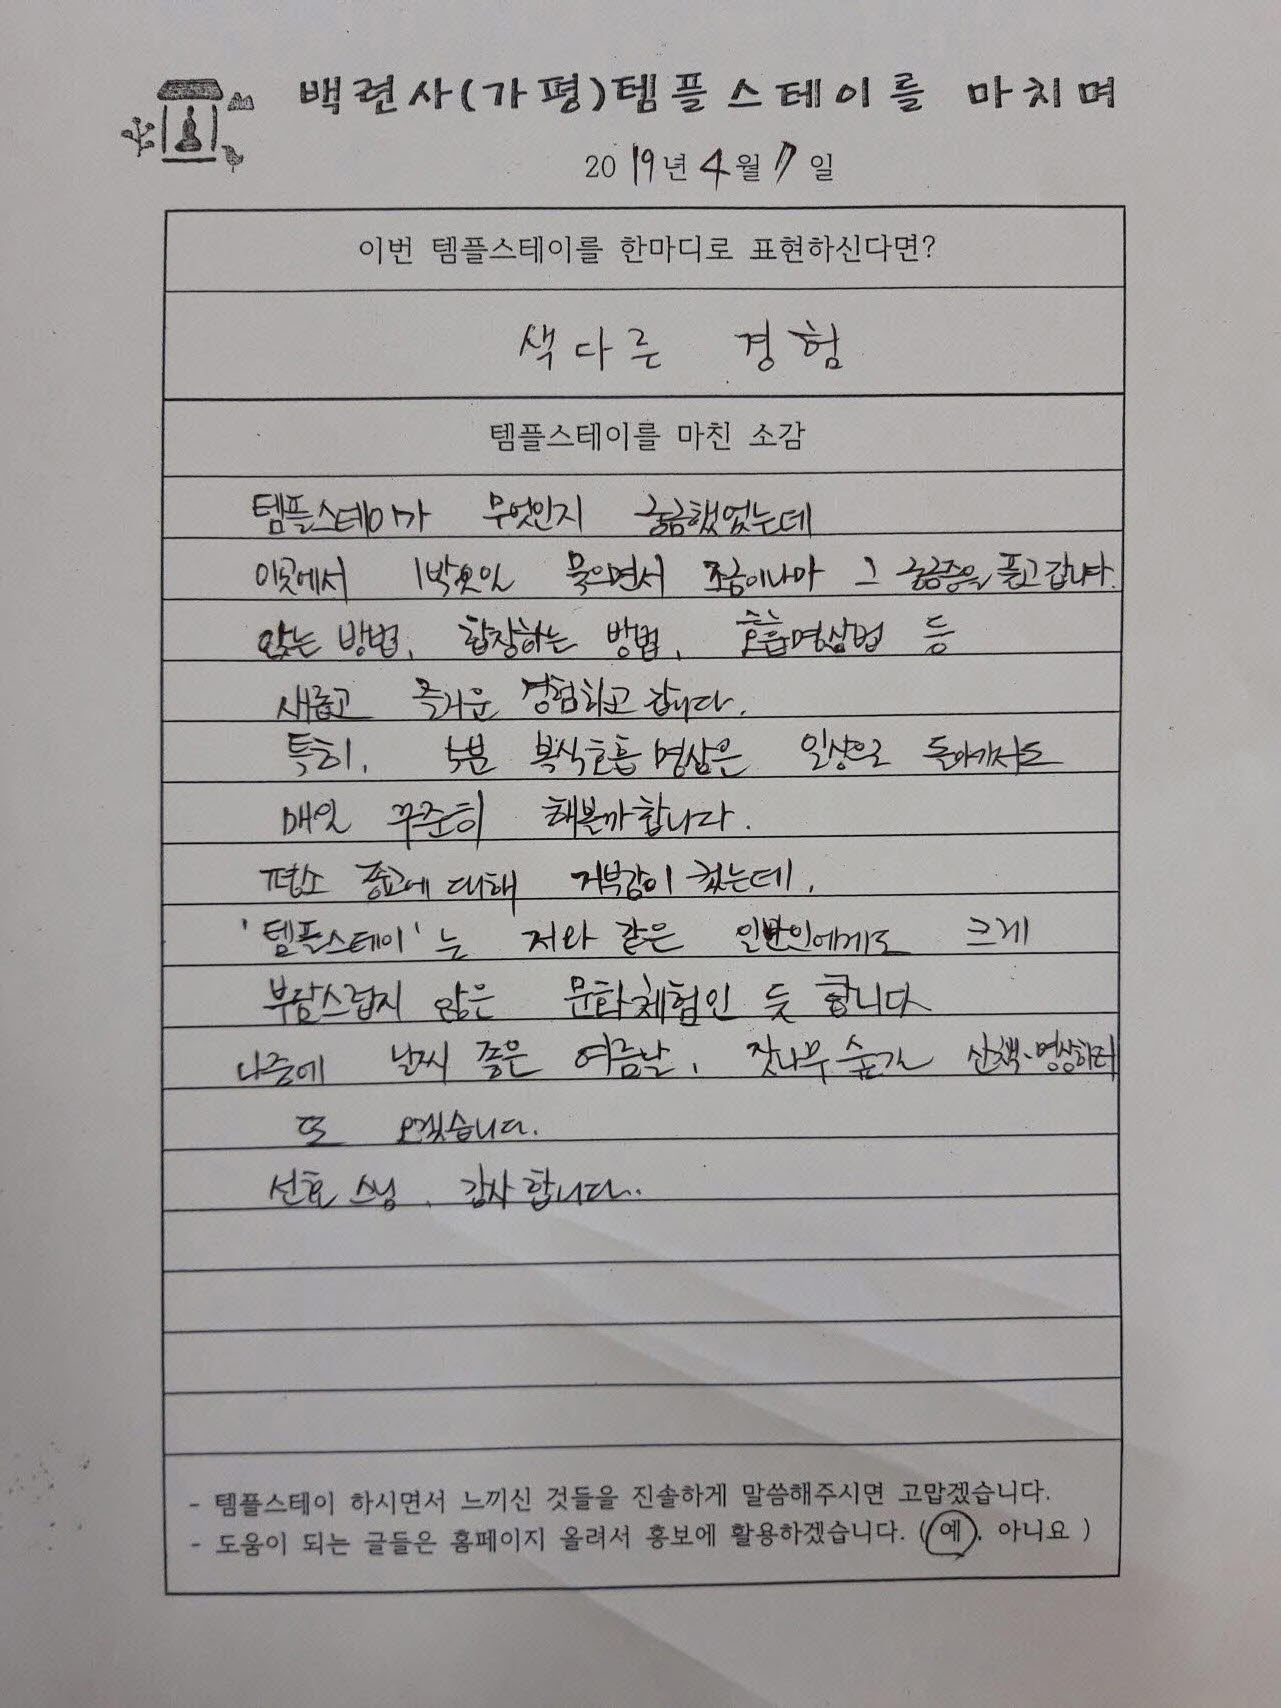 백련사(가평)템플스테이를 마치며
2019년 4월 7일
이번 템플스테이를 한마디로 표현하신다면?
색다른 경험
템플스테이를 마친 소감
템플스테이가 무엇인지 궁금했었는데
이곳에서 1박2일 묵으면서 조금이나마 그 궁금증을 풀고 갑니다.
앉는 방법, 합장하는 방법, 호흡명상법 등
새롭고 즐거운 경험하고 갑니다.
특히, 5분 복식호흡 명상은 일상으로 돌아가서도
매일 꾸준히 해볼까합니다.
평소 종교에 대해 거부감이 컸는데,
'템플스테이'는 저와 같은 일반인에게도 크게
부담스럽지 않은 문화체험인 듯 합니다
나중에 날씨 좋은 여름날, 잣나무숲길 산책·명상하러
또 오겠습니다.
선효 스님, 감사합니다..
- 템플스테이 하시면서 느끼신 것들을 진솔하게 말씀해주시면 고맙겠습니다.
- 도움이 되는 글들은 홈페이지 올려서 홍보에 활용하겠습니다. (예, 아니요 )